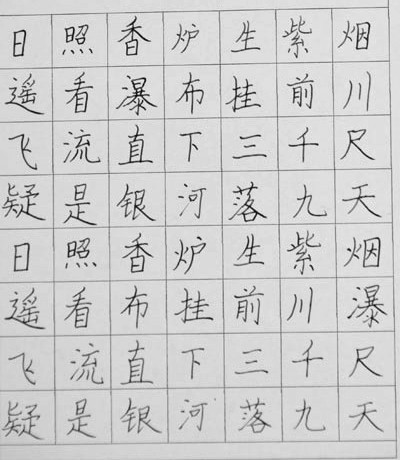 日照香炉生紫烟
遥看瀑布挂前川
飞流直下三千尺
疑是银河落九天
日照香炉生紫烟
遥看布挂前川瀑
飞流直下三千尺
疑是银河落九天